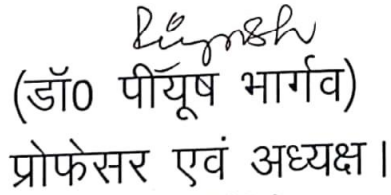 (डॉ0 पीयूष भार्गव)
प्रोफेसर एवं अध्यक्ष।